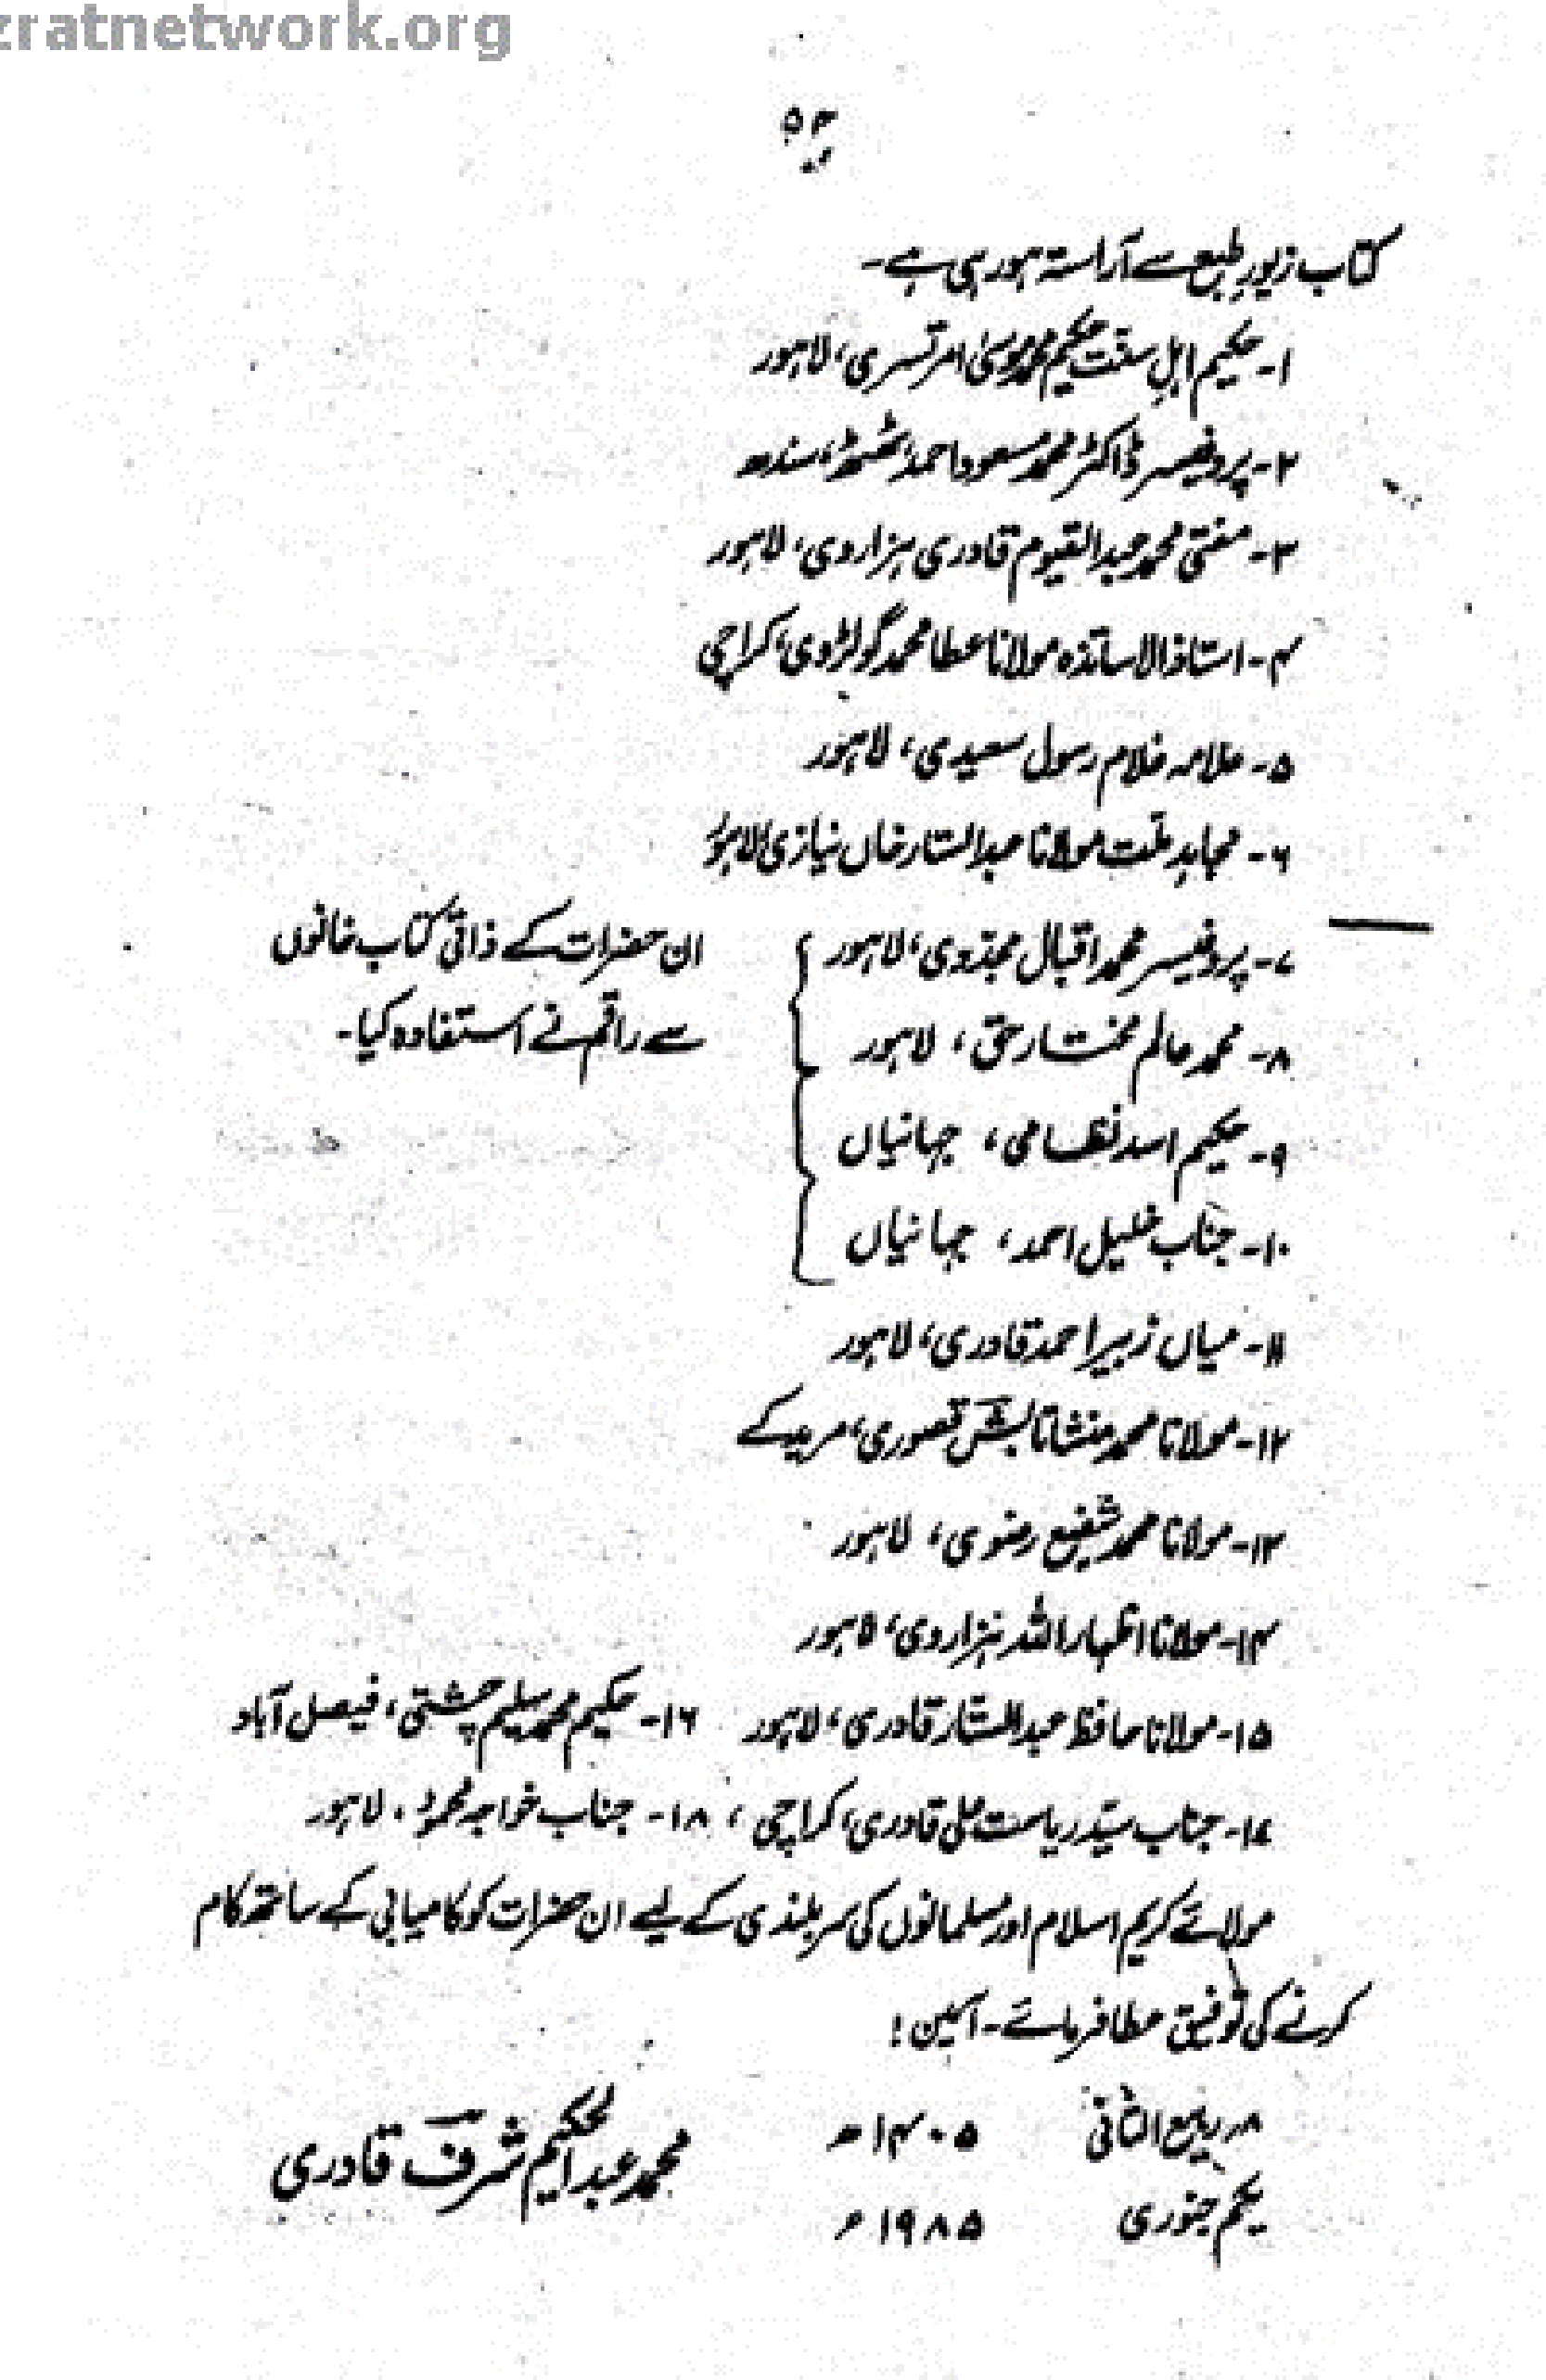 zratnetwork.org
۵۳
کتاب زیورِ طبع سے آراستہ ہو رہی ہے۔
۱۔ حکیم اہلِ سنّت حکیم محمد موسیٰ امرتسری، لاہور
۲۔ پروفیسر ڈاکٹر محمد مسعود احمد، ٹھٹھہ، سندھ
۳۔ مفتی محمد عبدالقیوم قادری ہزاروی، لاہور
۴۔ استاذ الاساتذہ مولانا عطا محمد گولڑوی، کراچی
۵۔ علامہ غلام رسول سعیدی، لاہور
۶۔ مجاہدِ ملّت مولانا عبدالستار خاں نیازی، لاہور
۷۔ پروفیسر محمد اقبال مجدّدی، لاہور
ان حضرات کے ذاتی کتاب خانوں
۸۔ محمد عالم مختار حق، لاہور
سے راقم نے استفادہ کیا۔
۹۔ حکیم اسد نظامی، جہانیاں
۱۰۔ جناب خلیل احمد، جہانیاں
۱۱۔ میاں زبیر احمد قادری، لاہور
۱۲۔ مولانا محمد منشا تابش قصوری، مریدکے
۱۳۔ مولانا محمد شفیع رضوی، لاہور
۱۴۔ مولانا اظہار اللہ ہزاروی، لاہور
۱۵۔ مولانا حافظ عبدالستّار قادری، لاہور ۱۶۔ حکیم محمد سلیم چشتی، فیصل آباد
۱۷۔ جناب سیّد ریاست علی قادری، کراچی، ۱۸۔ جناب خواجہ محمود، لاہور
مولائے کریم اسلام اور مسلمانوں کی سربلندی کے لیے ان حضرات کو کامیابی کے ساتھ کام
کرنے کی توفیق عطا فرمائے۔ آمین!
۸ ربیع الثانی ۱۴۰۵ھ
محمد عبدالحکیم شرف قادری
یکم جنوری ۱۹۸۵ء